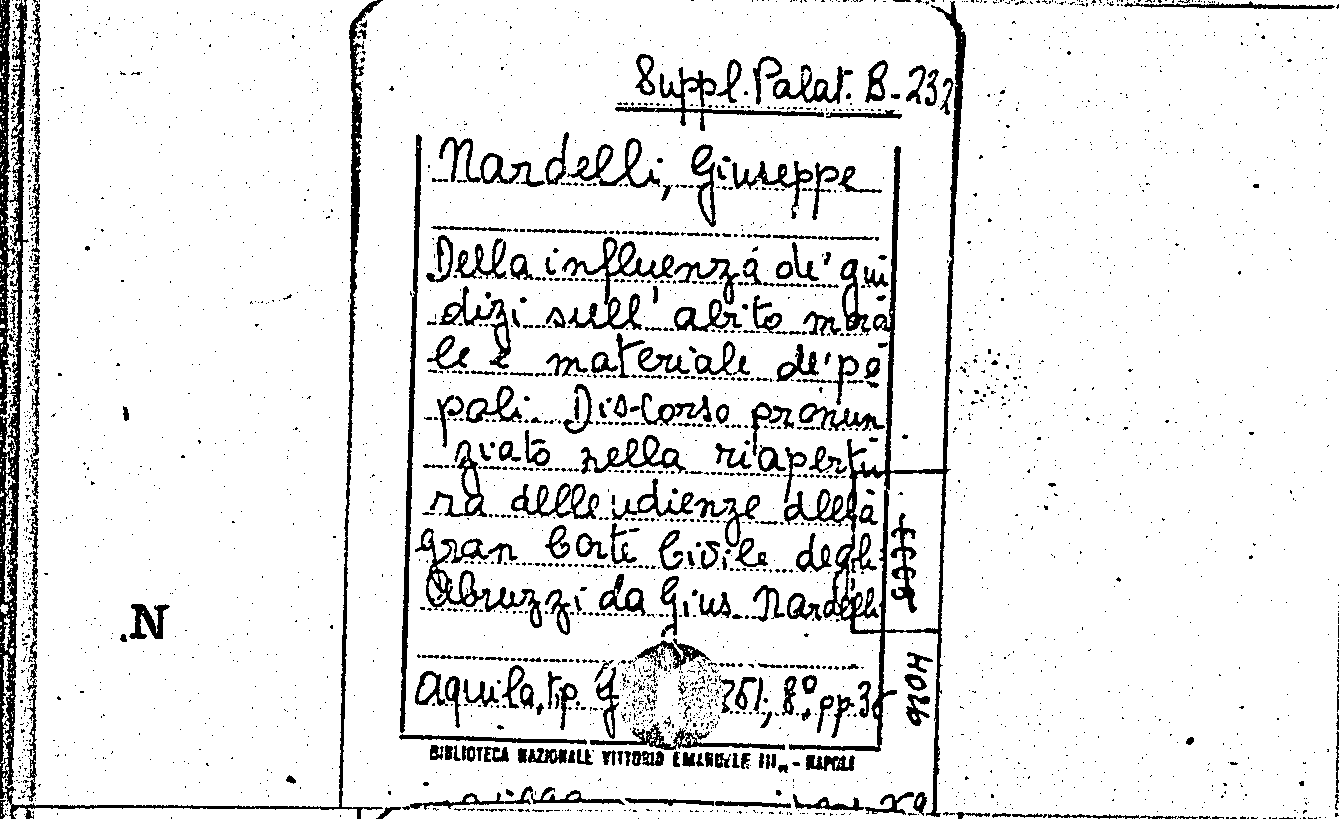 Suppl. Palat. B-232
Nardelli, Giuseppe
Della influenza de' giu
dizi sull' abito mora
le e materiale de' po
poli. Discorso pronun
ziato nella riapertu
ra delle udienze della
gran Corte Civile degli
Abruzzi da Gius. Nardelli
N
Aquila, tip. 8°, pp. 36
BIBLIOTECA NAZIONALE VITTORIO EMANUELE III - NAPOLI